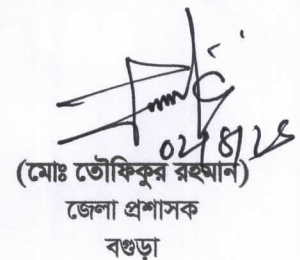 (মোঃ তৌফিকুর রহমান)
জেলা প্রশাসক
বগুড়া